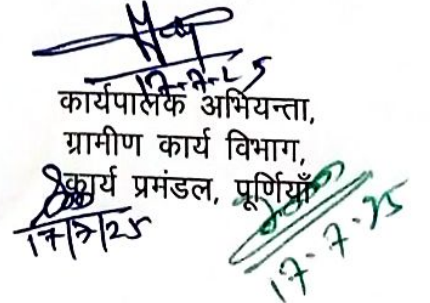 17-7-25
कार्यपालक अभियन्ता,
ग्रामीण कार्य विभाग,
कार्य प्रमंडल, पूर्णियाँ
17/7/25
17.7.25